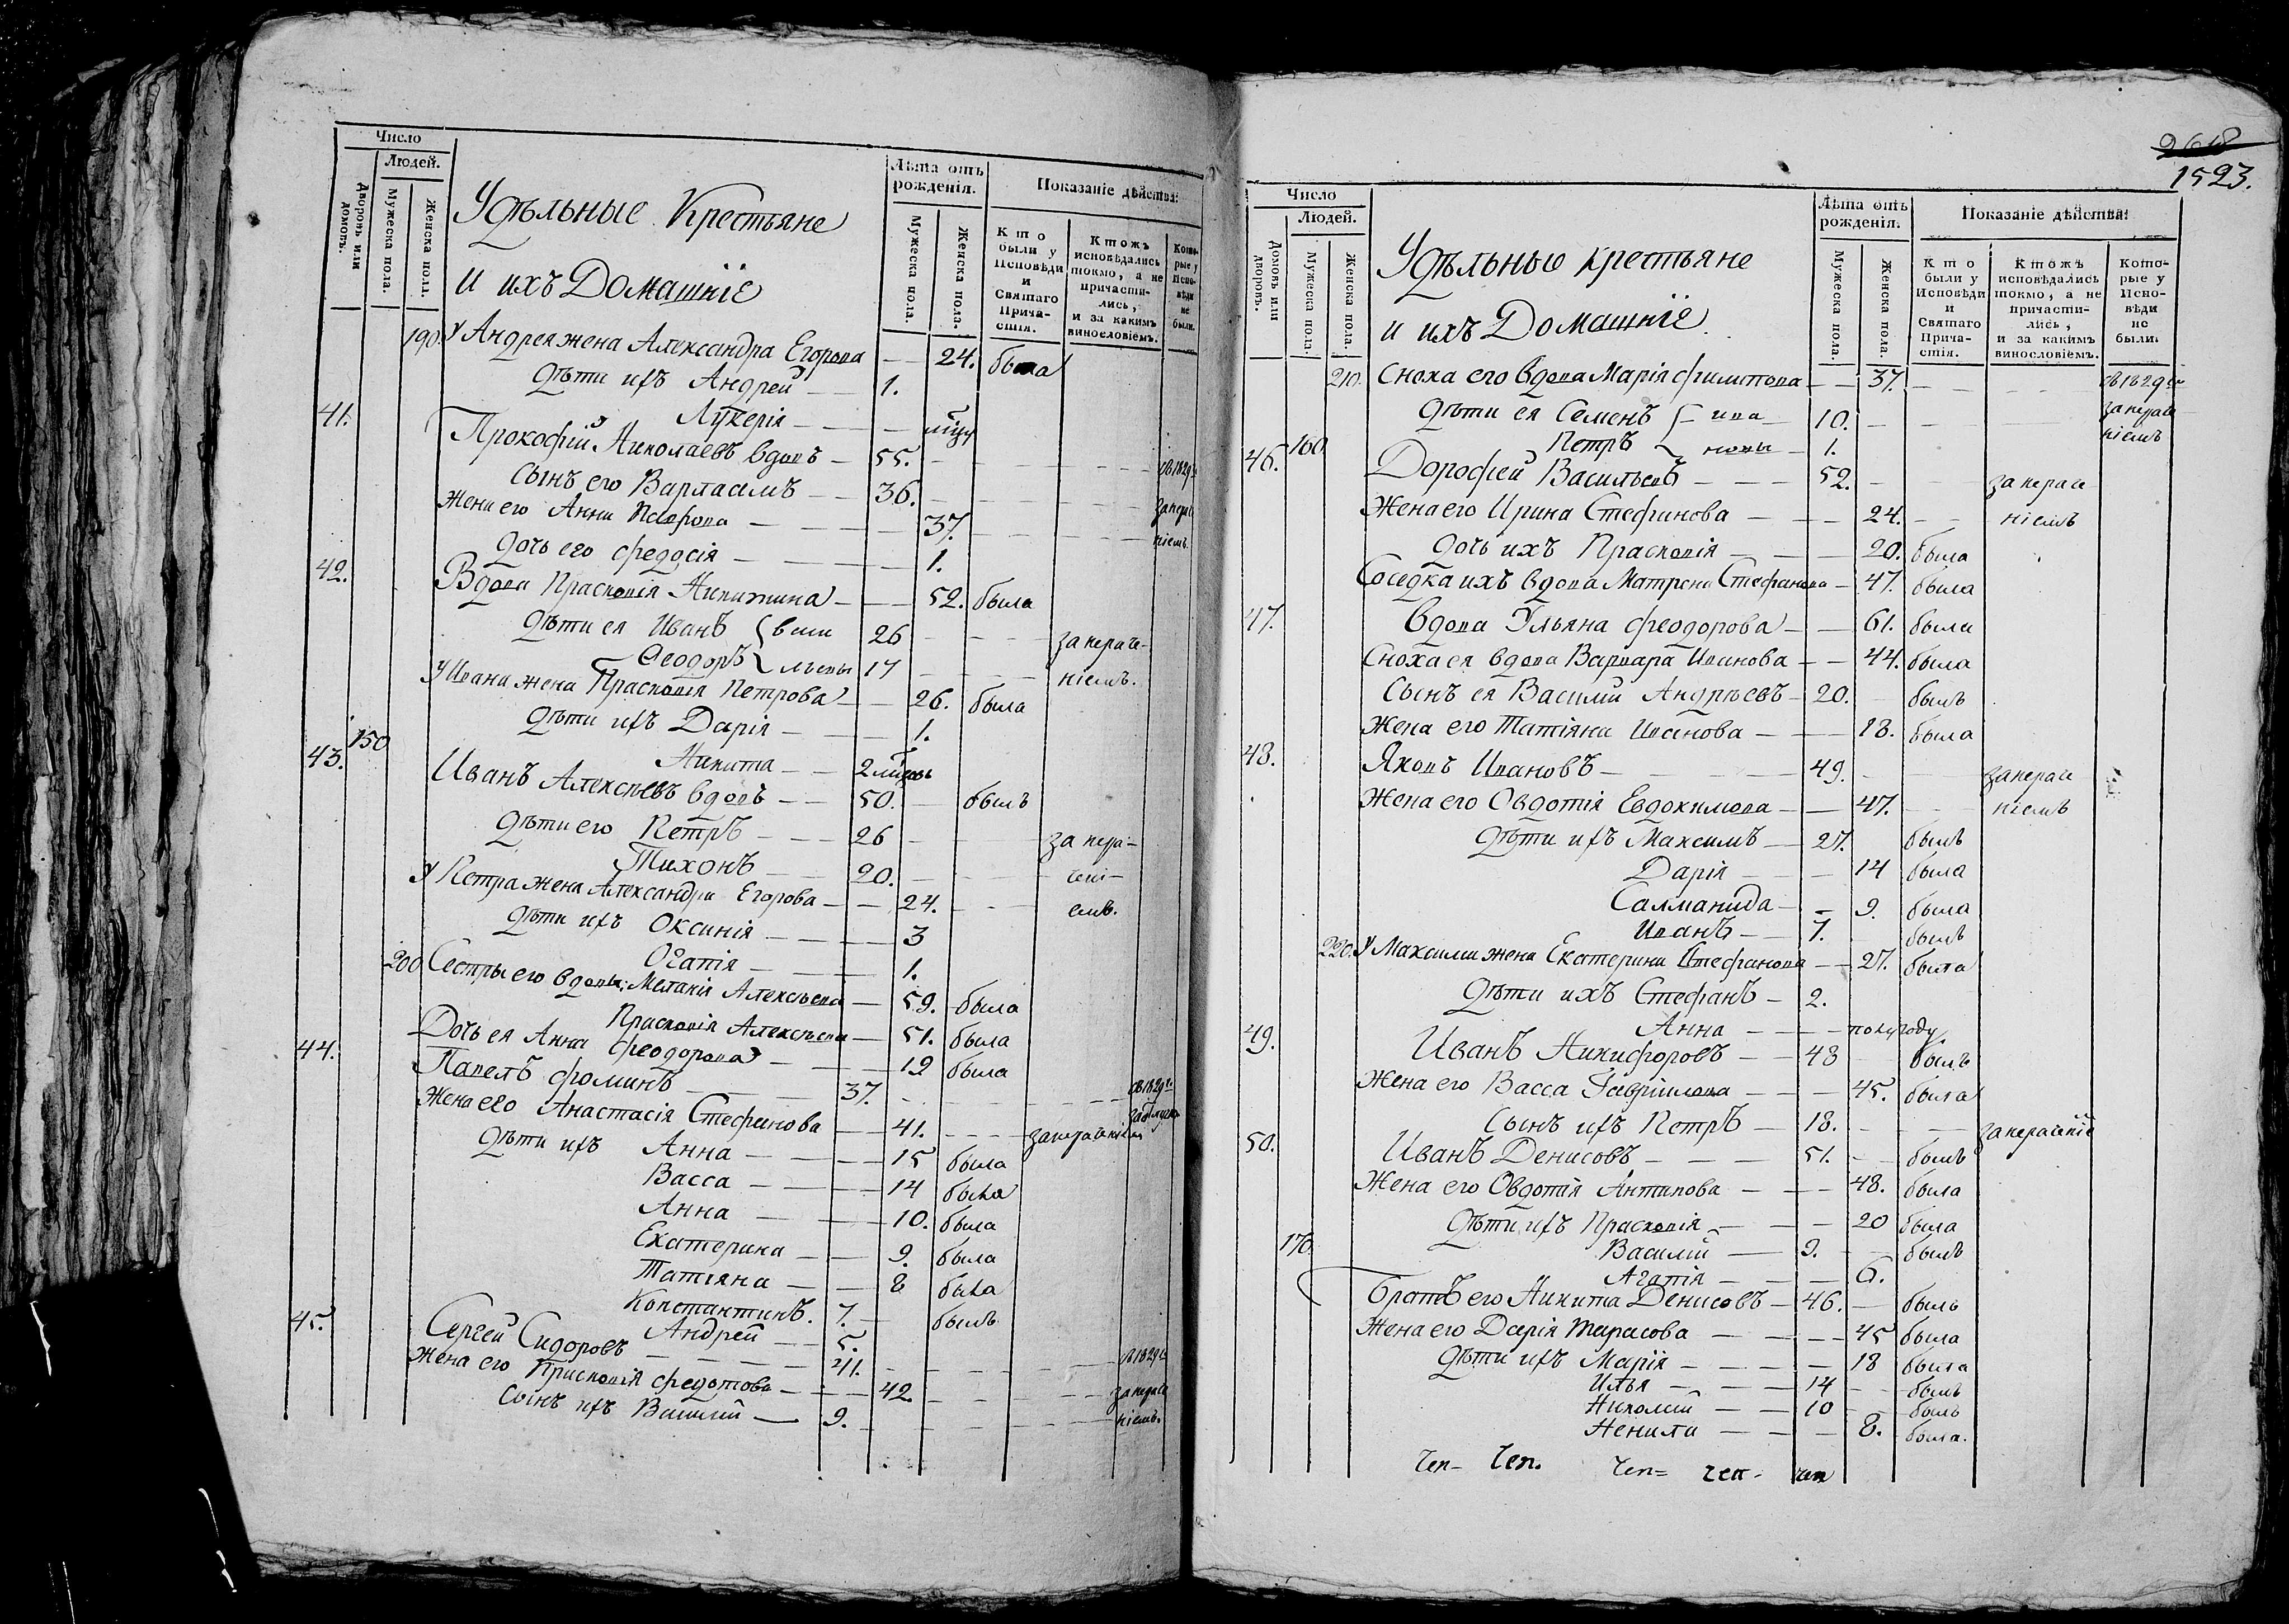 Число
Людей.
Дворовъ или домовъ.
Мужеска пола.
Женска пола.
Удѣльные Крестьяне
и ихъ Домашніе
Лѣта отъ рожденія.
Мужеска пола.
Женска пола.
Показаніе дѣйства:
Кто были у Исповѣди и Святаго Причастія.
Ктожъ исповѣдались токмо, а не причастились, и за какимъ винословіемъ.
Которые у Исповѣди не были.
190. У Андрея жена Александра Егорова — — 24. была
дѣти ихъ Андрей — — 1.
Лукерія — — —
41. Прокофій Николаевъ вдовъ — 55. — — —
Сынъ его Варлаамъ — — 36. — — —
Жена его Анна — — — 37. — — —
дочь его Федосія — — — 1.
42. Вдова Прасковія Никитина — — — 52. была
дѣти ея Иванъ 26 — — — за нераче-
Феодоръ 17 — — — ніемъ.
У Ивана жена Прасковія Петрова — — 26. была
дѣти ихъ Дарія — — — 1.
150 Никита — — 2
43. Иванъ Алексѣевъ вдовъ — — 50. — былъ
дѣти его Петръ — — — 26 — — за нера-
Тихонъ — — — 20. — — чені-
У Петра жена Александра Егорова — — 24. — — емъ.
дѣти ихъ Оксинія — — — 3
Огапія — — — 1.
200 Сестры его вдовы: Меланія Алексѣева — 59. была
Прасковія Алексѣева — 51. была
Дочь ея Анна Феодорова — — — 19 была
44. Павелъ Фоминъ — — — 37. — — —
Жена его Анастасія Стефанова — — 41. — — —
дѣти ихъ Анна — — — 15 была
Васса — — — 14 была
Анна — — — 10. была
Екатерина — — 9. была
Татіяна — — 8 была
Константинъ. 7. — былъ
Андрей — — 5.
45. Сергей Сидоровъ — — — 41. — — —
Жена его Прасковія Федотова — — — 42. — — —
Сынъ ихъ Василій — 9. — — —
2618
1523.
Число
Людей.
Домовъ или дворовъ.
Мужеска пола.
Женска пола.
Удѣльные крестьяне
и ихъ Домашніе
Лѣта отъ рожденія.
Мужеска пола.
Женска пола.
Показаніе дѣйства:
Кто были у Исповѣди и Святаго Причастія.
Ктожъ исповѣдались токмо, а не причастились, и за какимъ винословіемъ.
Которые у Исповѣди не были.
210. Сноха его вдова Марія Филипова — — 37. — — —
дѣти ея Семенъ — ива — 10. — — — за нераче
160 Петръ — новы — 1. ніемъ
46. Дорофей Васильевъ — — — 52. — — за нераче
Жена его Ирина Стефанова — — — 24. — — ніемъ
дочь ихъ Прасковія — — — 20. была
Соседка ихъ вдова Матрена Стефанова — 47. была
47. Вдова Ульяна Феодорова — — 61. была
Сноха ея вдова Варвара Иванова — — 44. была
Сынъ ея Василій Андрѣевъ — 20. — былъ
Жена его Татіяна Иванова — — — 18. была
48. Яковъ Ивановъ — — — 49. — — за нераче
Жена его Овдотія Евдокимова — — 47. — — ніемъ
дѣти ихъ Максимъ — 27. былъ
Дарія — — — 14 была
Салманида — — 9. была
Иванъ — 7. былъ
220. У Максима жена Екатерина Стефанова — — 27. была
дѣти ихъ Стефанъ — 2.
Анна — — — полугоду
49. Иванъ Никифоровъ — — 48 — былъ
Жена его Васса Гавриилова — — — 45. была
Сынъ ихъ Петръ — 18. — — за нераченіе
50. Иванъ Денисовъ — — — 51. — былъ
Жена его Овдотія Антипова — — — 48. была
дѣти ихъ Прасковія — — — 20 была
170. Василій — 9. — былъ
Агапія — — — 6.
Братъ его Никита Денисовъ — 46. — былъ
Жена его Дарія Тарасова — — — 45 была
дѣти ихъ Марія — — — 18 была
Илья — — 14 — былъ
Николай — — 10 — былъ
Ненила — — — 8. была.